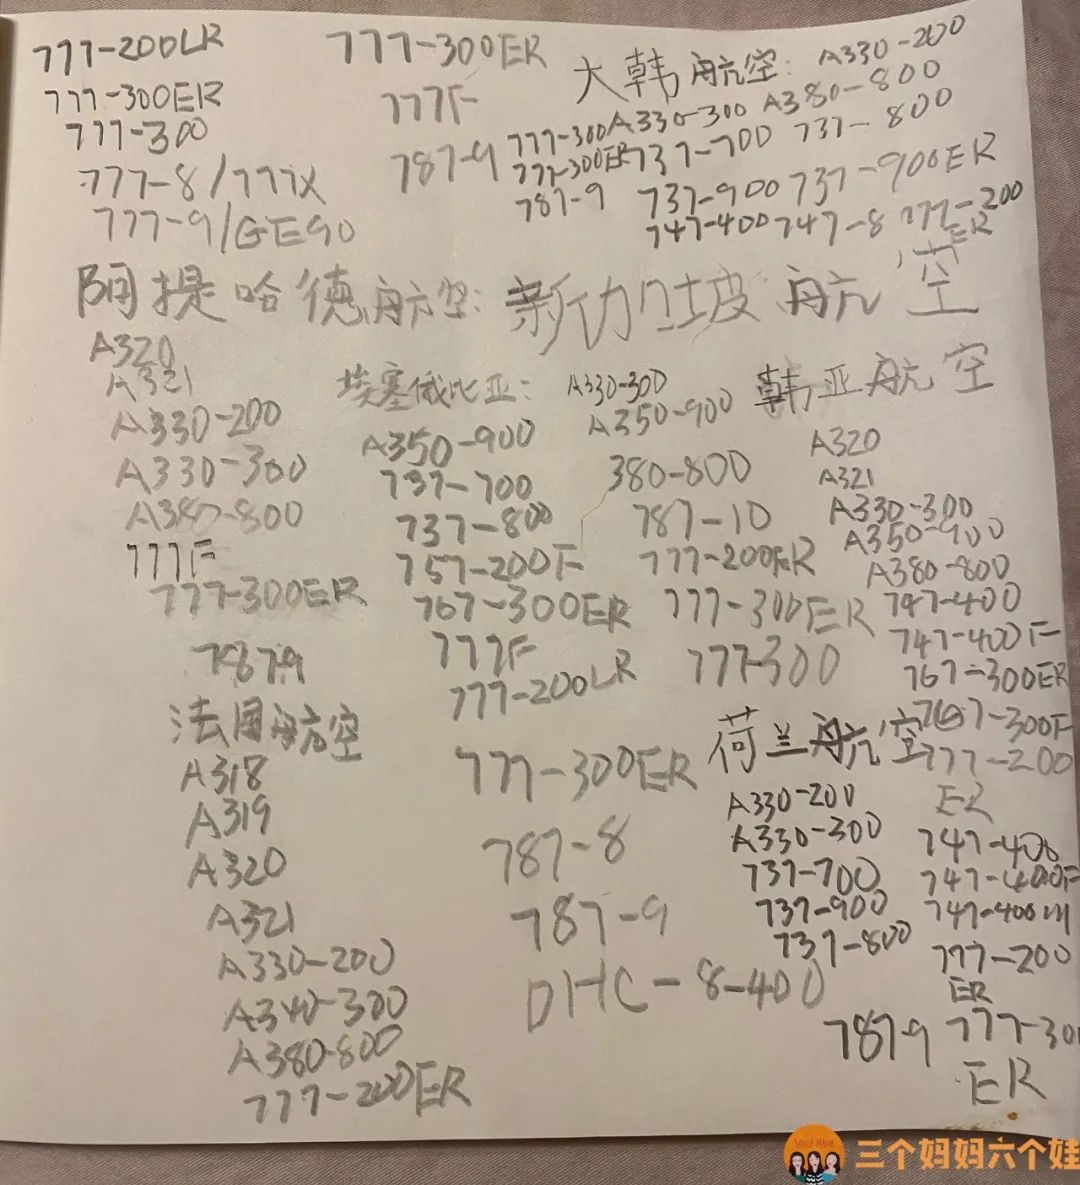 777-200LR
777-300ER
777-300
777-8/777X
777-9/GE90
777-300ER
777F
787-9
大韩航空: A330-200
777-300 A330-300 A380-800
777-300ER 737-700 737-800
787-9 737-900 737-900ER
747-400 747-8 777-200
ER
阿提哈德航空:
A320
A321
A330-200
A330-300
A380-800
777F
777-300ER
787-9
法国航空
A318
A319
A320
A321
A330-200
A340-300
A380-800
777-200ER
777-300ER
埃塞俄比亚:
A350-900
737-700
737-800
757-200F
767-300ER
777F
777-200LR
787-8
787-9
DHC-8-400
新加坡航空
A330-300
A350-900
380-800
787-10
777-200ER
777-300ER
777-300
韩亚航空
A320
A321
A330-300
A350-900
A380-800
747-400
747-400F
767-300ER
767-300F
777-200
ER
荷兰航空
A330-200
A330-300
737-700
737-900
737-800
747-400
747-400F
747-400M
777-200
ER
787-9
777-300
ER
三个妈妈六个娃